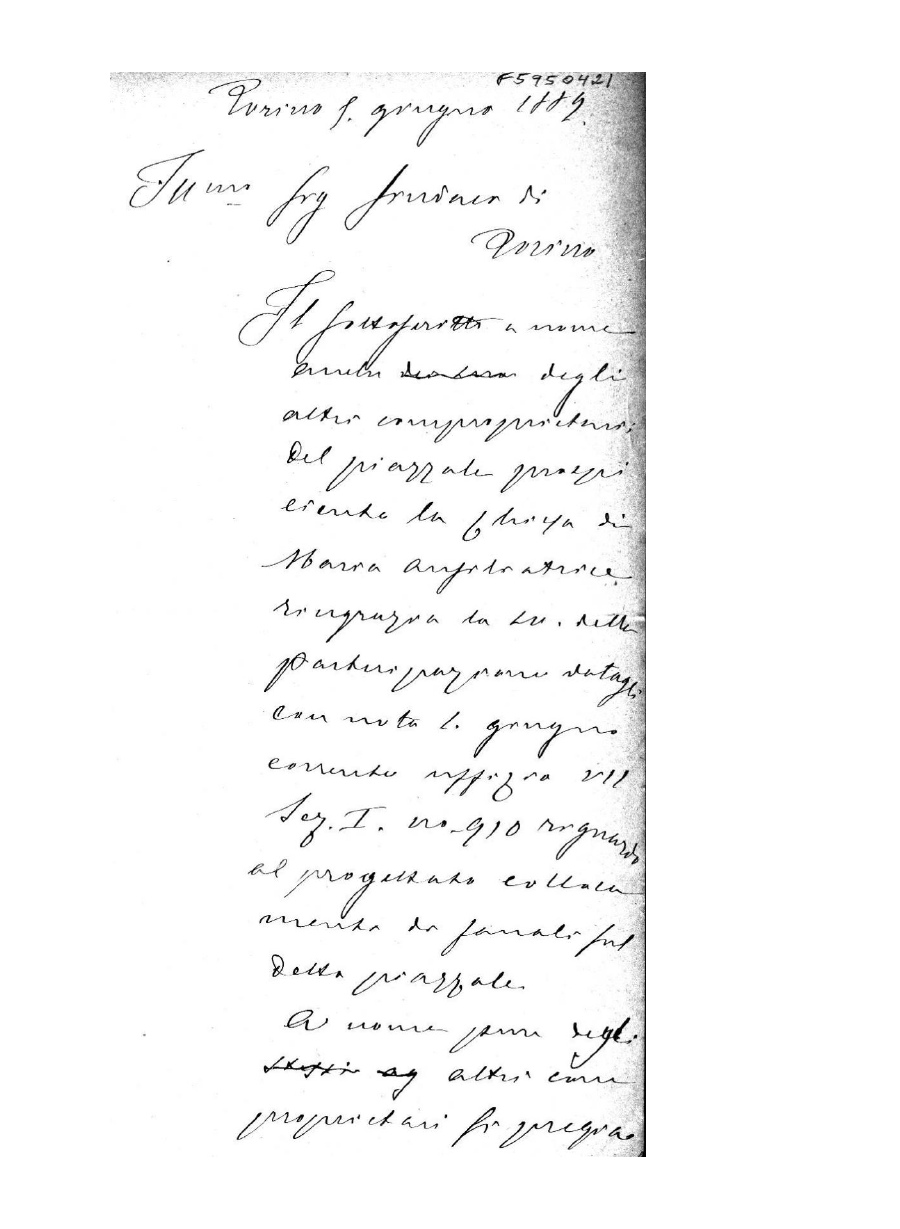 F5950421
Torino 5. giugno 1889.
Ill.mo Sig Sindaco di
Torino
Il sottoscritto a nome
anche degli
altri comproprietari
del piazzale prospi
ciente la Chiesa di
Maria Ausiliatrice
ringrazia la S.V. della
partecipazione datagli
con nota 1. giugno
corrente uffizio VII
Sez. I. no. 910 riguardo
al progettato colloca
mento di fanali sul
detto piazzale.
A nome pure degli
stessi ag altri com
proprietari si pregia